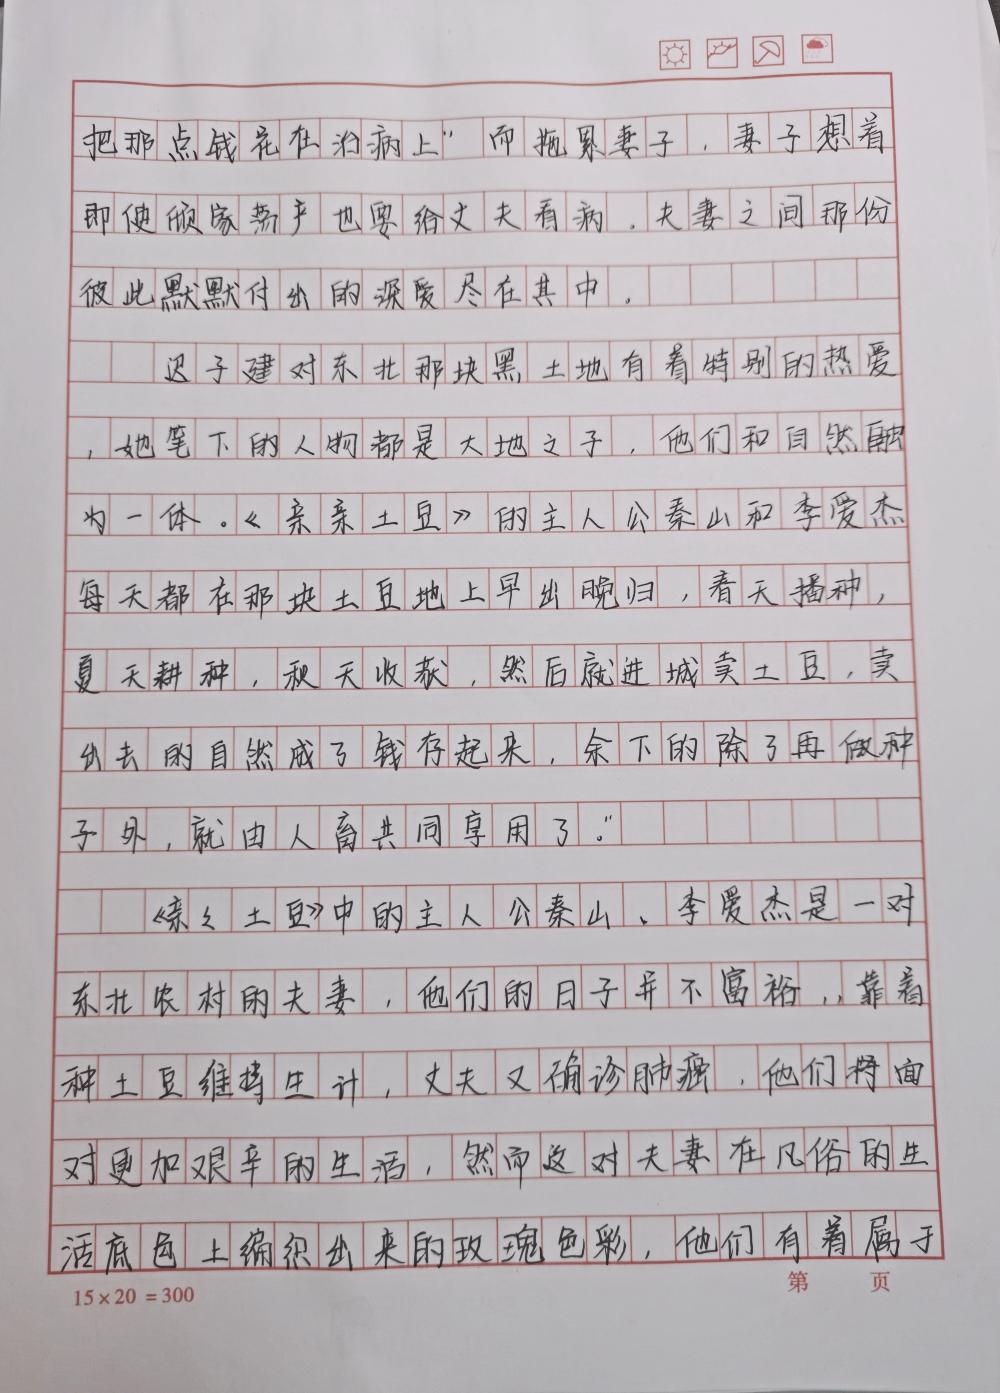 把那点钱花在治病上"而拖累妻子，妻子想着
即使倾家荡产也要给丈夫看病．夫妻之间那份
彼此默默付出的深爱尽在其中．
迟子建对东北那块黑土地有着特别的热爱
，她笔下的人物都是大地之子，他们和自然融
为一体。《亲亲土豆》的主人公秦山和李爱杰
每天都在那块土豆地上早出晚归，春天播种，
夏天耕种，秋天收获，然后就进城卖土豆，卖
出去的自然成了钱存起来，余下的除了再做种
子外，就由人畜共同享用了。"
《亲々土豆》中的主人公秦山、李爱杰是一对
东北农村的夫妻，他们的日子并不富裕，，靠着
种土豆维持生计，丈夫又确诊肺癌，他们将面
对更加艰辛的生活，然而这对夫妻在凡俗的生
活底色上编织出来的玫瑰色彩，他们有着属于
15×20=300
第 页